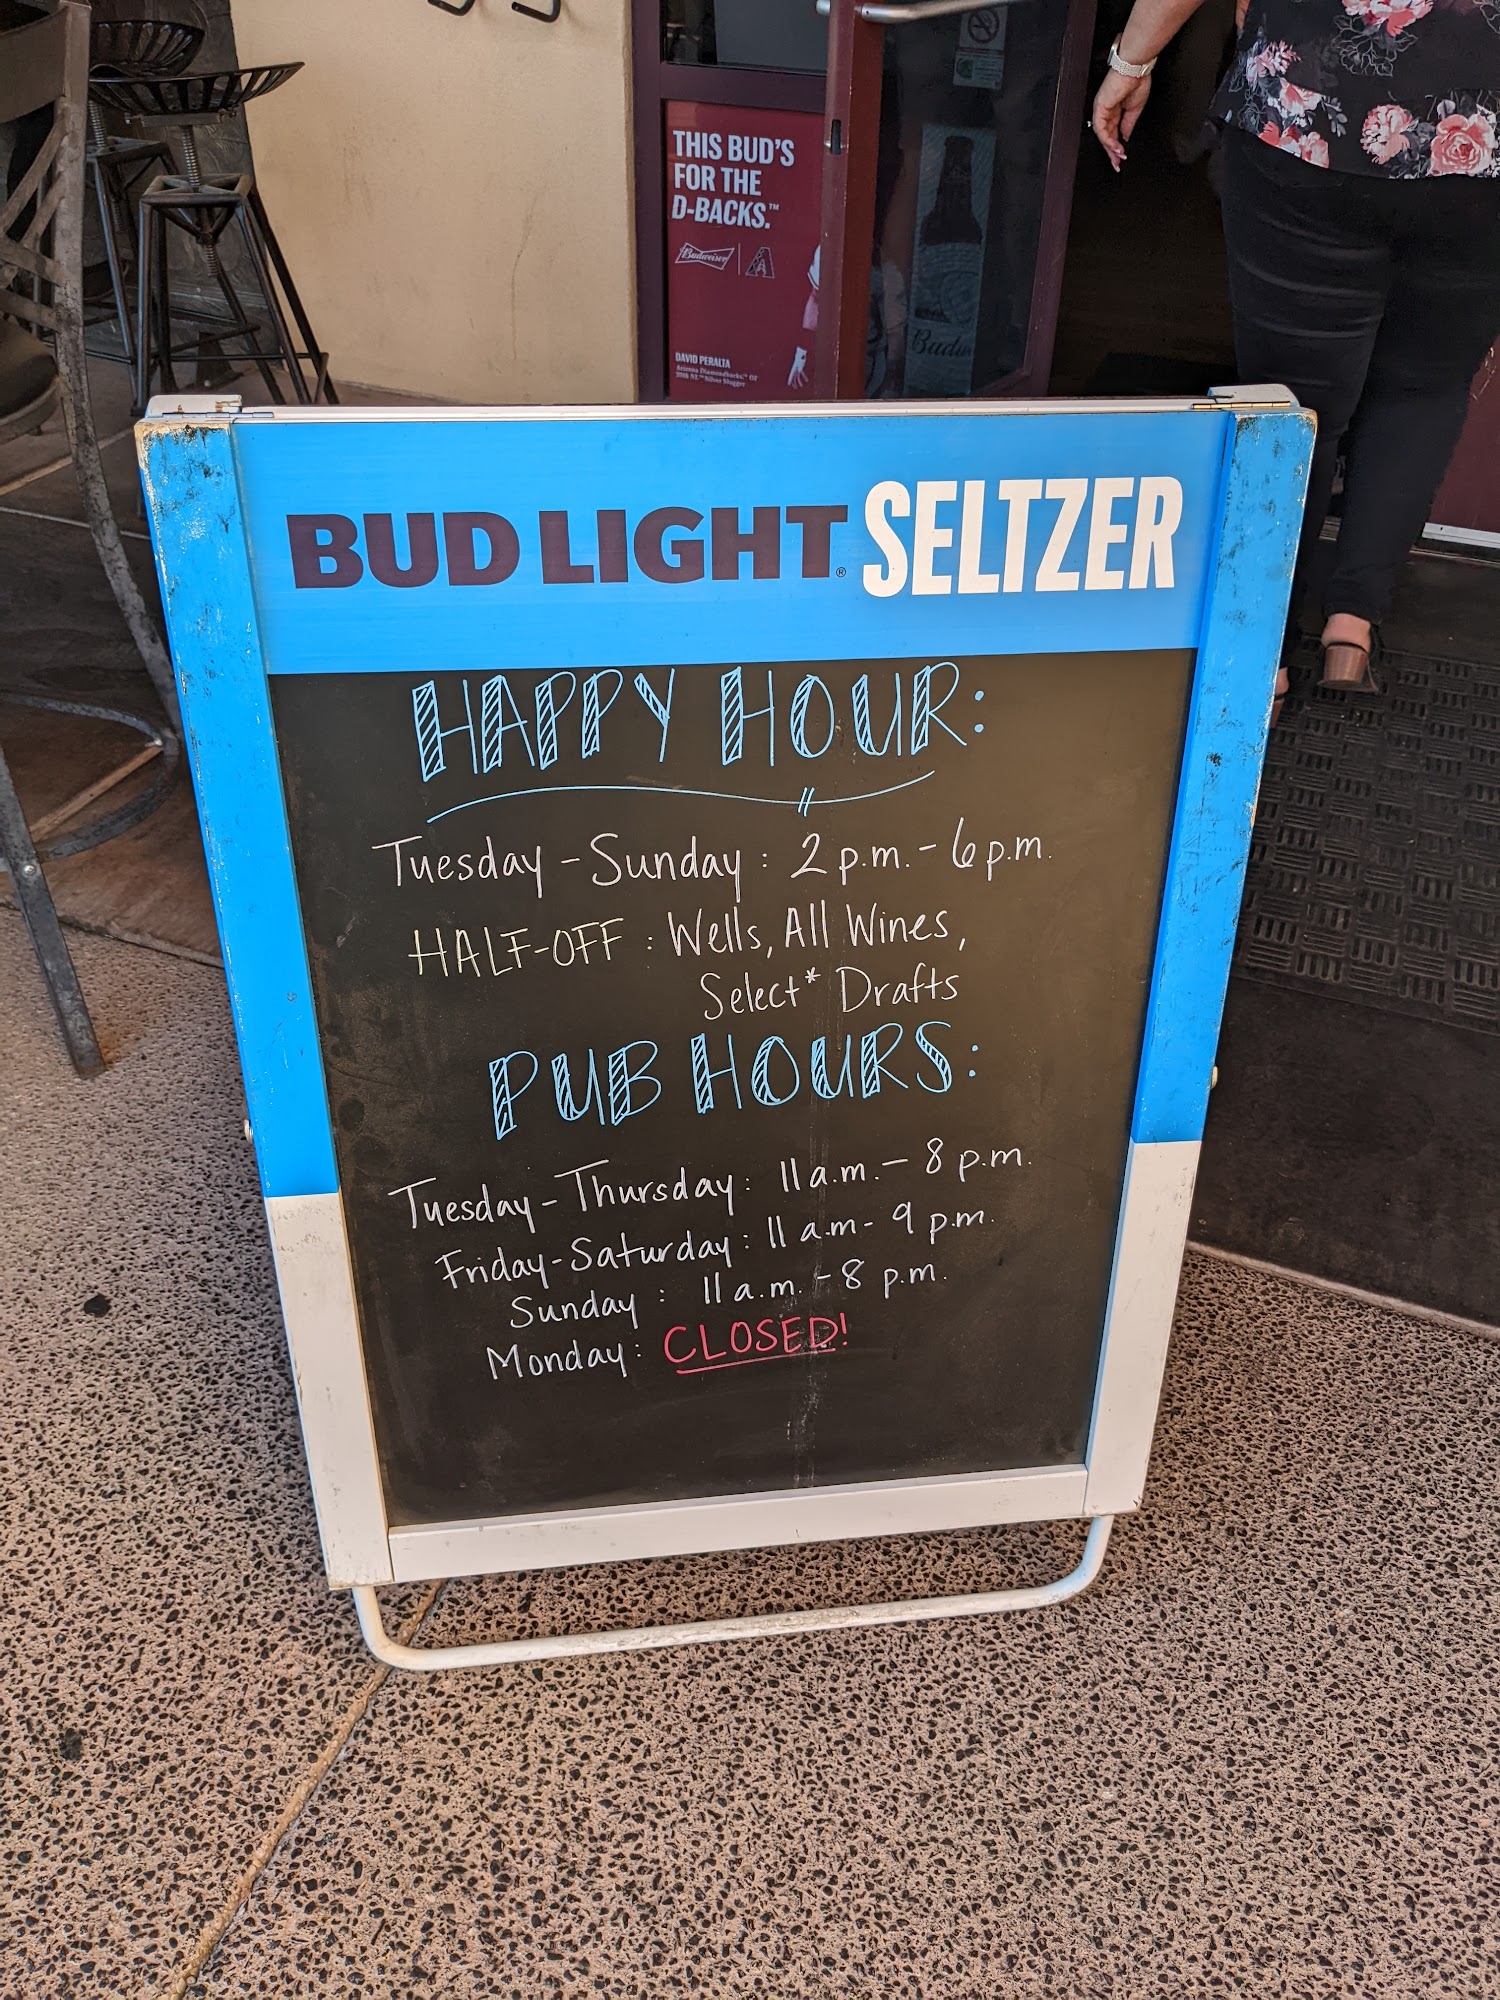 THIS BUD'S
FOR THE
D-BACKS.™
Budweiser
DAVID PERALTA
Arizona Diamondbacks,® OF
2018 NL™ Silver Slugger
BUD LIGHT® SELTZER
HAPPY HOUR:
Tuesday - Sunday : 2 p.m. - 6 p.m.
HALF-OFF : Wells, All Wines,
Select* Drafts
PUB HOURS:
Tuesday - Thursday : 11 a.m. - 8 p.m.
Friday - Saturday : 11 a.m - 9 p.m.
Sunday : 11 a.m. - 8 p.m.
Monday : CLOSED!